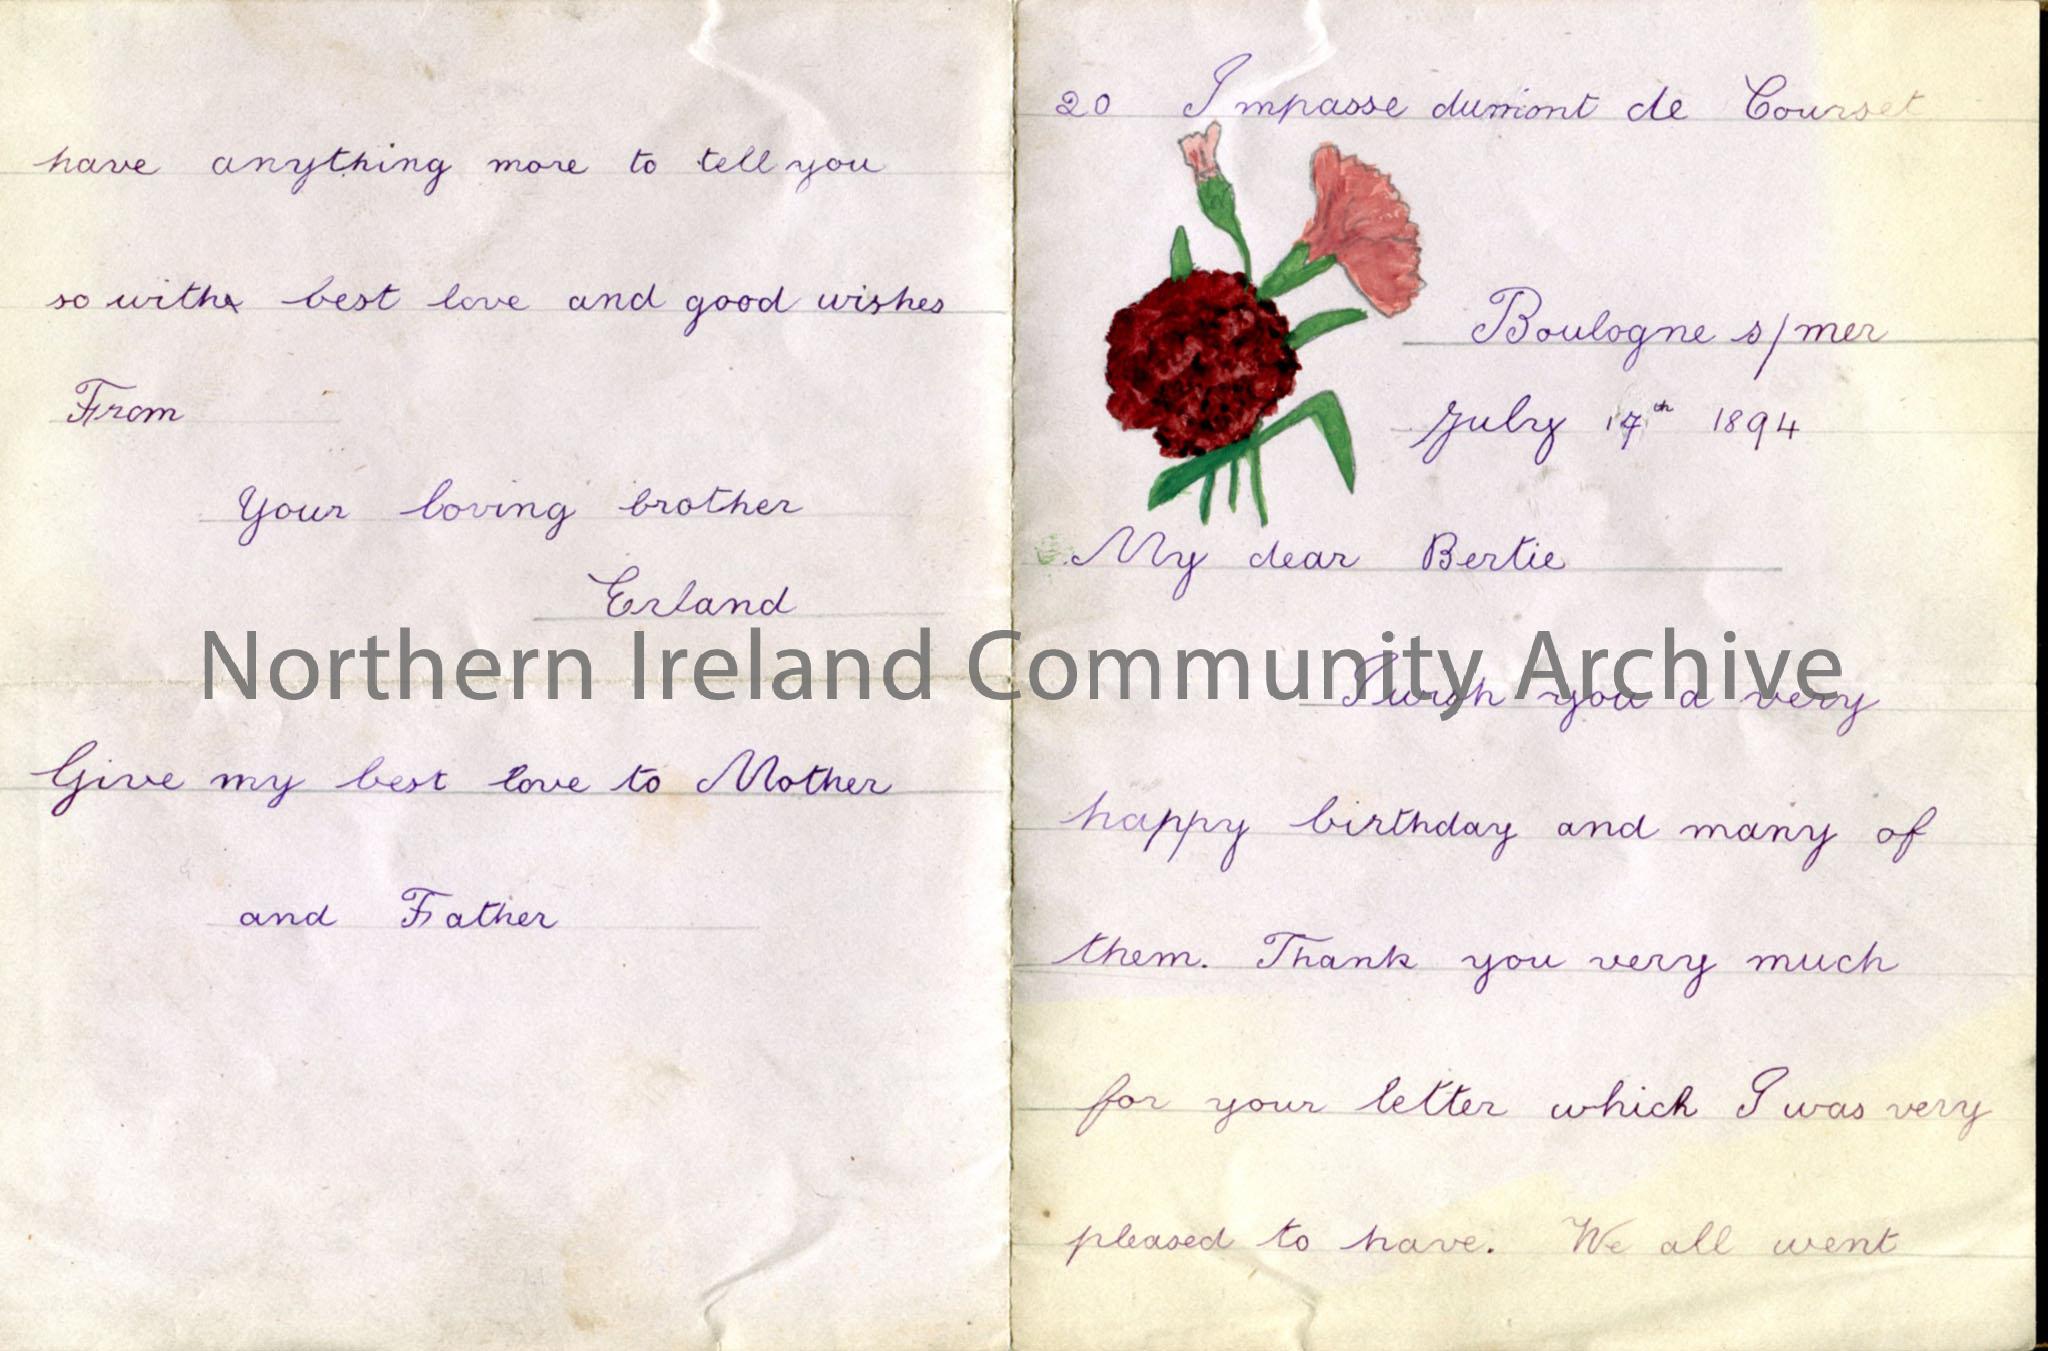 have anything more to tell you
so with best love and good wishes
From
Your loving brother
Erland
Give my best love to Mother
and Father
20 Impasse dumont de Courset
Boulogne s/mer
July 17th 1894
My dear Bertie
I wish you a very
happy birthday and many of
them. Thank you very much
for your letter which I was very
pleased to have. We all went
Northern Ireland Community Archive